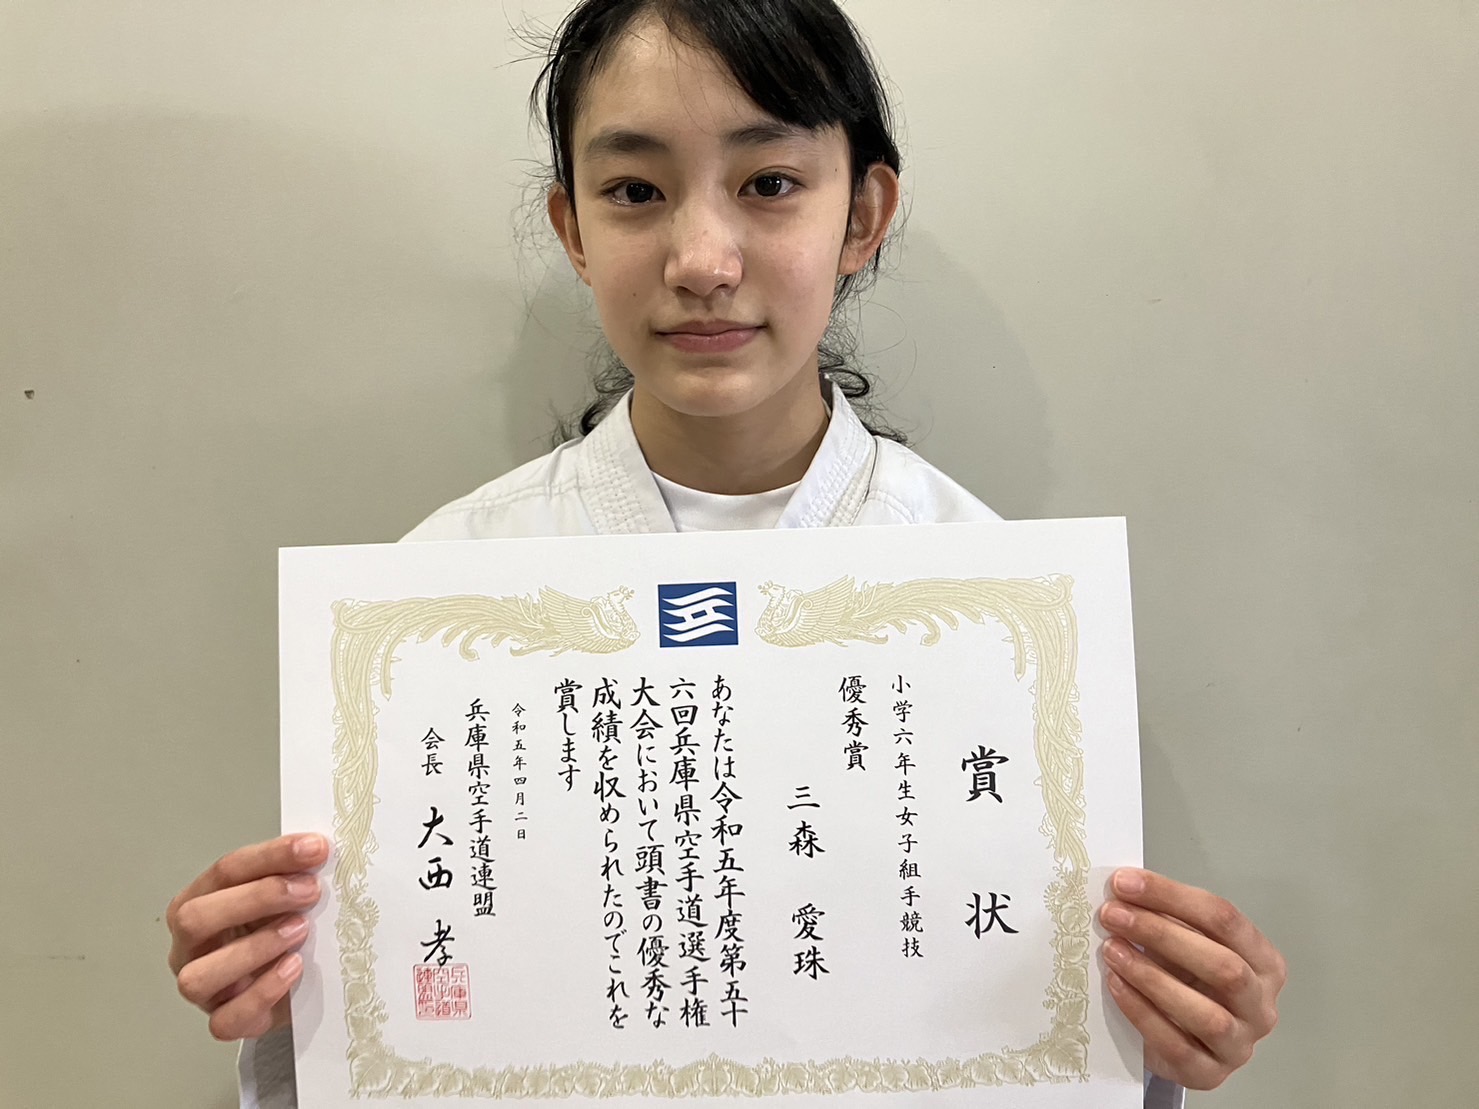 賞状
小学六年生女子組手競技
優秀賞
三森 愛珠
あなたは令和五年度第五十
六回兵庫県空手道選手権
大会において頭書の優秀な
成績を収められたのでこれを
賞します
令和五年四月二日
兵庫県空手道連盟
会長 大西 孝